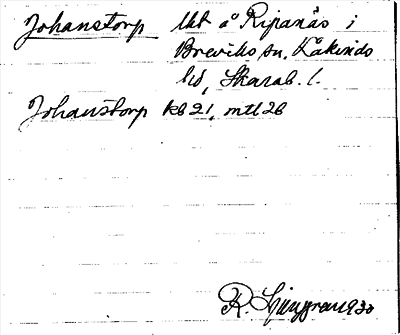 Johanstorp Ukt å Ripanäs i
Breviks sn, Kåkinds
hd, Skarab. l.
Johanstorp kb 21, mtl 26
R. Ljunggren 1930